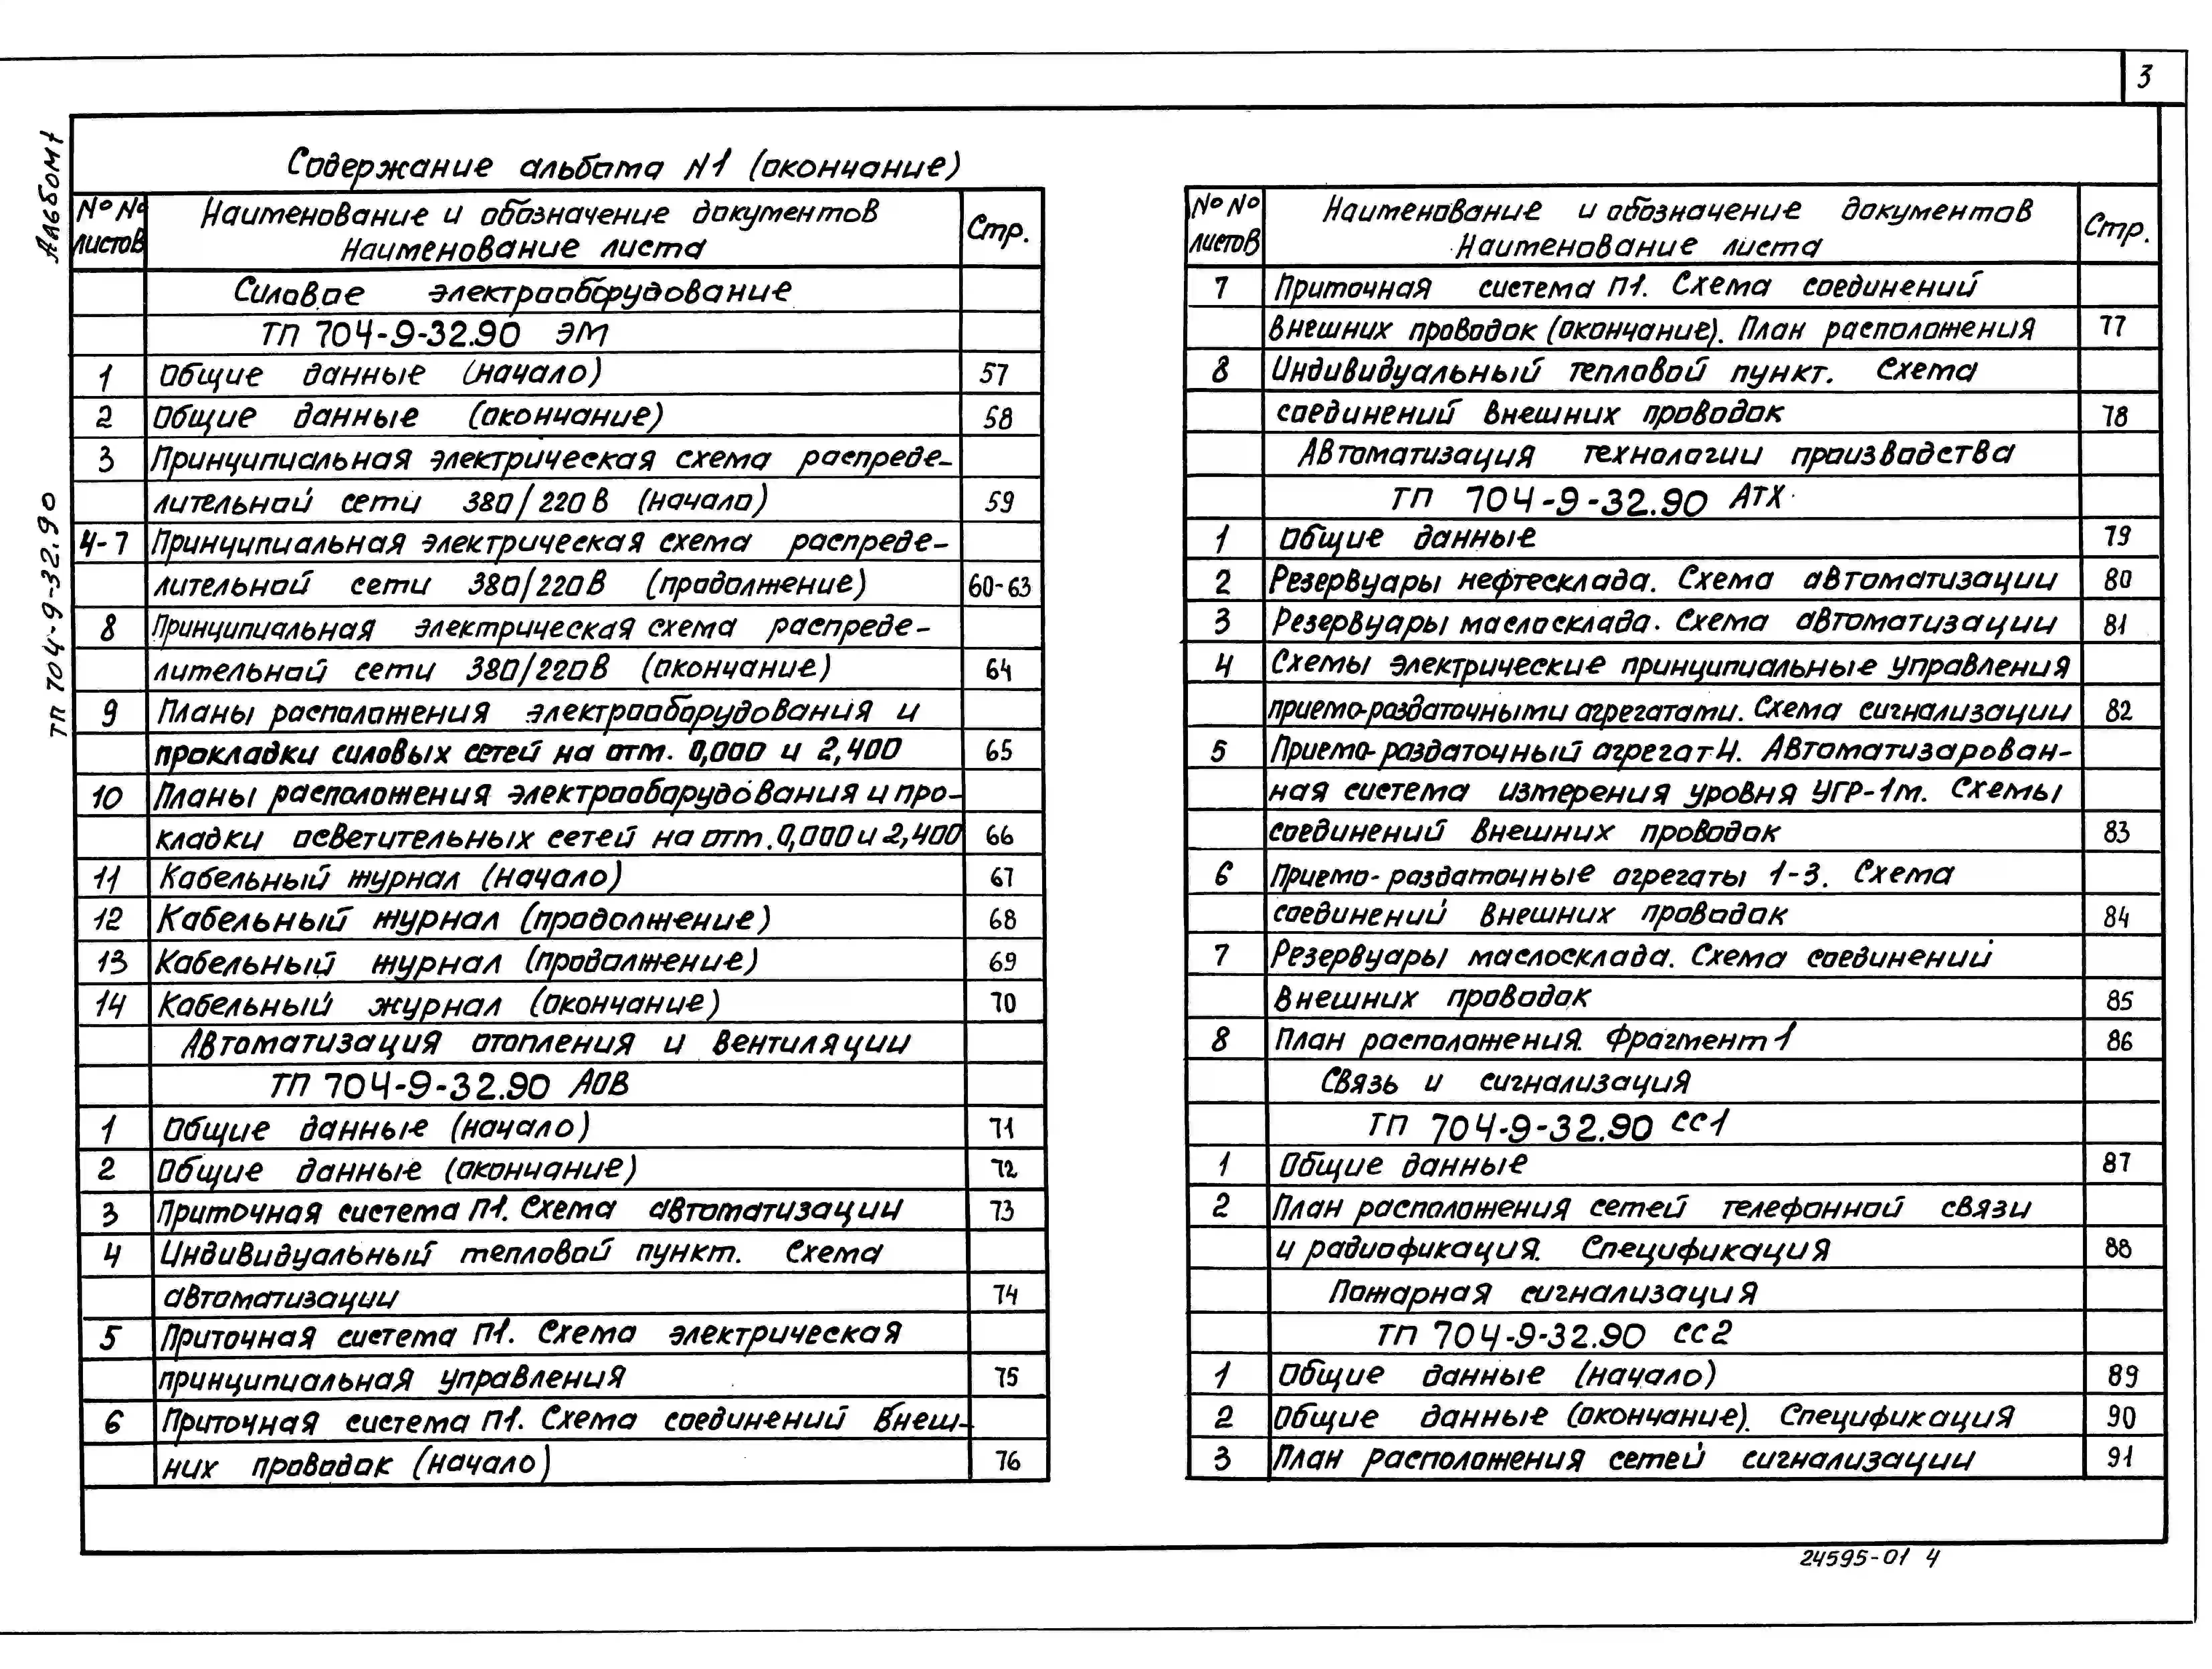 3
Альбом 1
ТП 704-9-32.90
Содержание альбома N1 (окончание)
№№ листов | Наименование и обозначение документов | Стр.
Наименование листа
Силовое электрооборудование
ТП 704-9-32.90 ЭМ
1 Общие данные (начало) 57
2 Общие данные (окончание) 58
3 Принципиальная электрическая схема распреде-
лительной сети 380/220В (начало) 59
4-7 Принципиальная электрическая схема распреде-
лительной сети 380/220В (продолжение) 60-63
8 Принципиальная электрическая схема распреде-
лительной сети 380/220В (окончание) 64
9 Планы расположения электрооборудования и
прокладки силовых сетей на отм. 0,000 и 2,400 65
10 Планы расположения электрооборудования и про-
кладки осветительных сетей на отм. 0,000 и 2,400 66
11 Кабельный журнал (начало) 67
12 Кабельный журнал (продолжение) 68
13 Кабельный журнал (продолжение) 69
14 Кабельный журнал (окончание) 70
Автоматизация отопления и вентиляции
ТП 704-9-32.90 АОВ
1 Общие данные (начало) 71
2 Общие данные (окончание) 72
3 Приточная система П1. Схема автоматизации 73
4 Индивидуальный тепловой пункт. Схема
автоматизации 74
5 Приточная система П1. Схема электрическая
принципиальная управления 75
6 Приточная система П1. Схема соединений внеш-
них проводок (начало) 76
№№ листов | Наименование и обозначение документов | Стр.
Наименование листа
7 Приточная система П1. Схема соединений
внешних проводок (окончание). План расположения 77
8 Индивидуальный тепловой пункт. Схема
соединений внешних проводок 78
Автоматизация технологии производства
ТП 704-9-32.90 АТХ
1 Общие данные 79
2 Резервуары нефтесклада. Схема автоматизации 80
3 Резервуары маслосклада. Схема автоматизации 81
4 Схемы электрические принципиальные управления
приемо-раздаточными агрегатами. Схема сигнализации 82
5 Приемо-раздаточный агрегат 4. Автоматизирован-
ная система измерения уровня УГР-1м. Схемы
соединений внешних проводок 83
6 Приемо-раздаточные агрегаты 1-3. Схема
соединений внешних проводок 84
7 Резервуары маслосклада. Схема соединений
внешних проводок 85
8 План расположения. Фрагмент 1 86
Связь и сигнализация
ТП 704-9-32.90 СС1
1 Общие данные 87
2 План расположения сетей телефонной связи
и радиофикация. Спецификация 88
Пожарная сигнализация
ТП 704-9-32.90 СС2
1 Общие данные (начало) 89
2 Общие данные (окончание). Спецификация 90
3 План расположения сетей сигнализации 91
24595-01 4